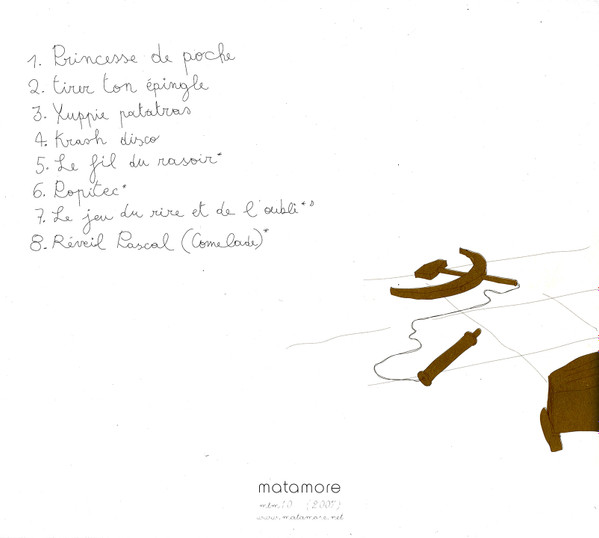 1. Princesse de poche
2. tirer ton épingle
3. Yuppie patatras
4. Krash disco
5. Le fil du rasoir*
6. Popitec*
7. Le jeu du rire et de l'oubli*°
8. Réveil Pascal (Comelade)*
matamore
mtm10 (2007)
www.matamore.net